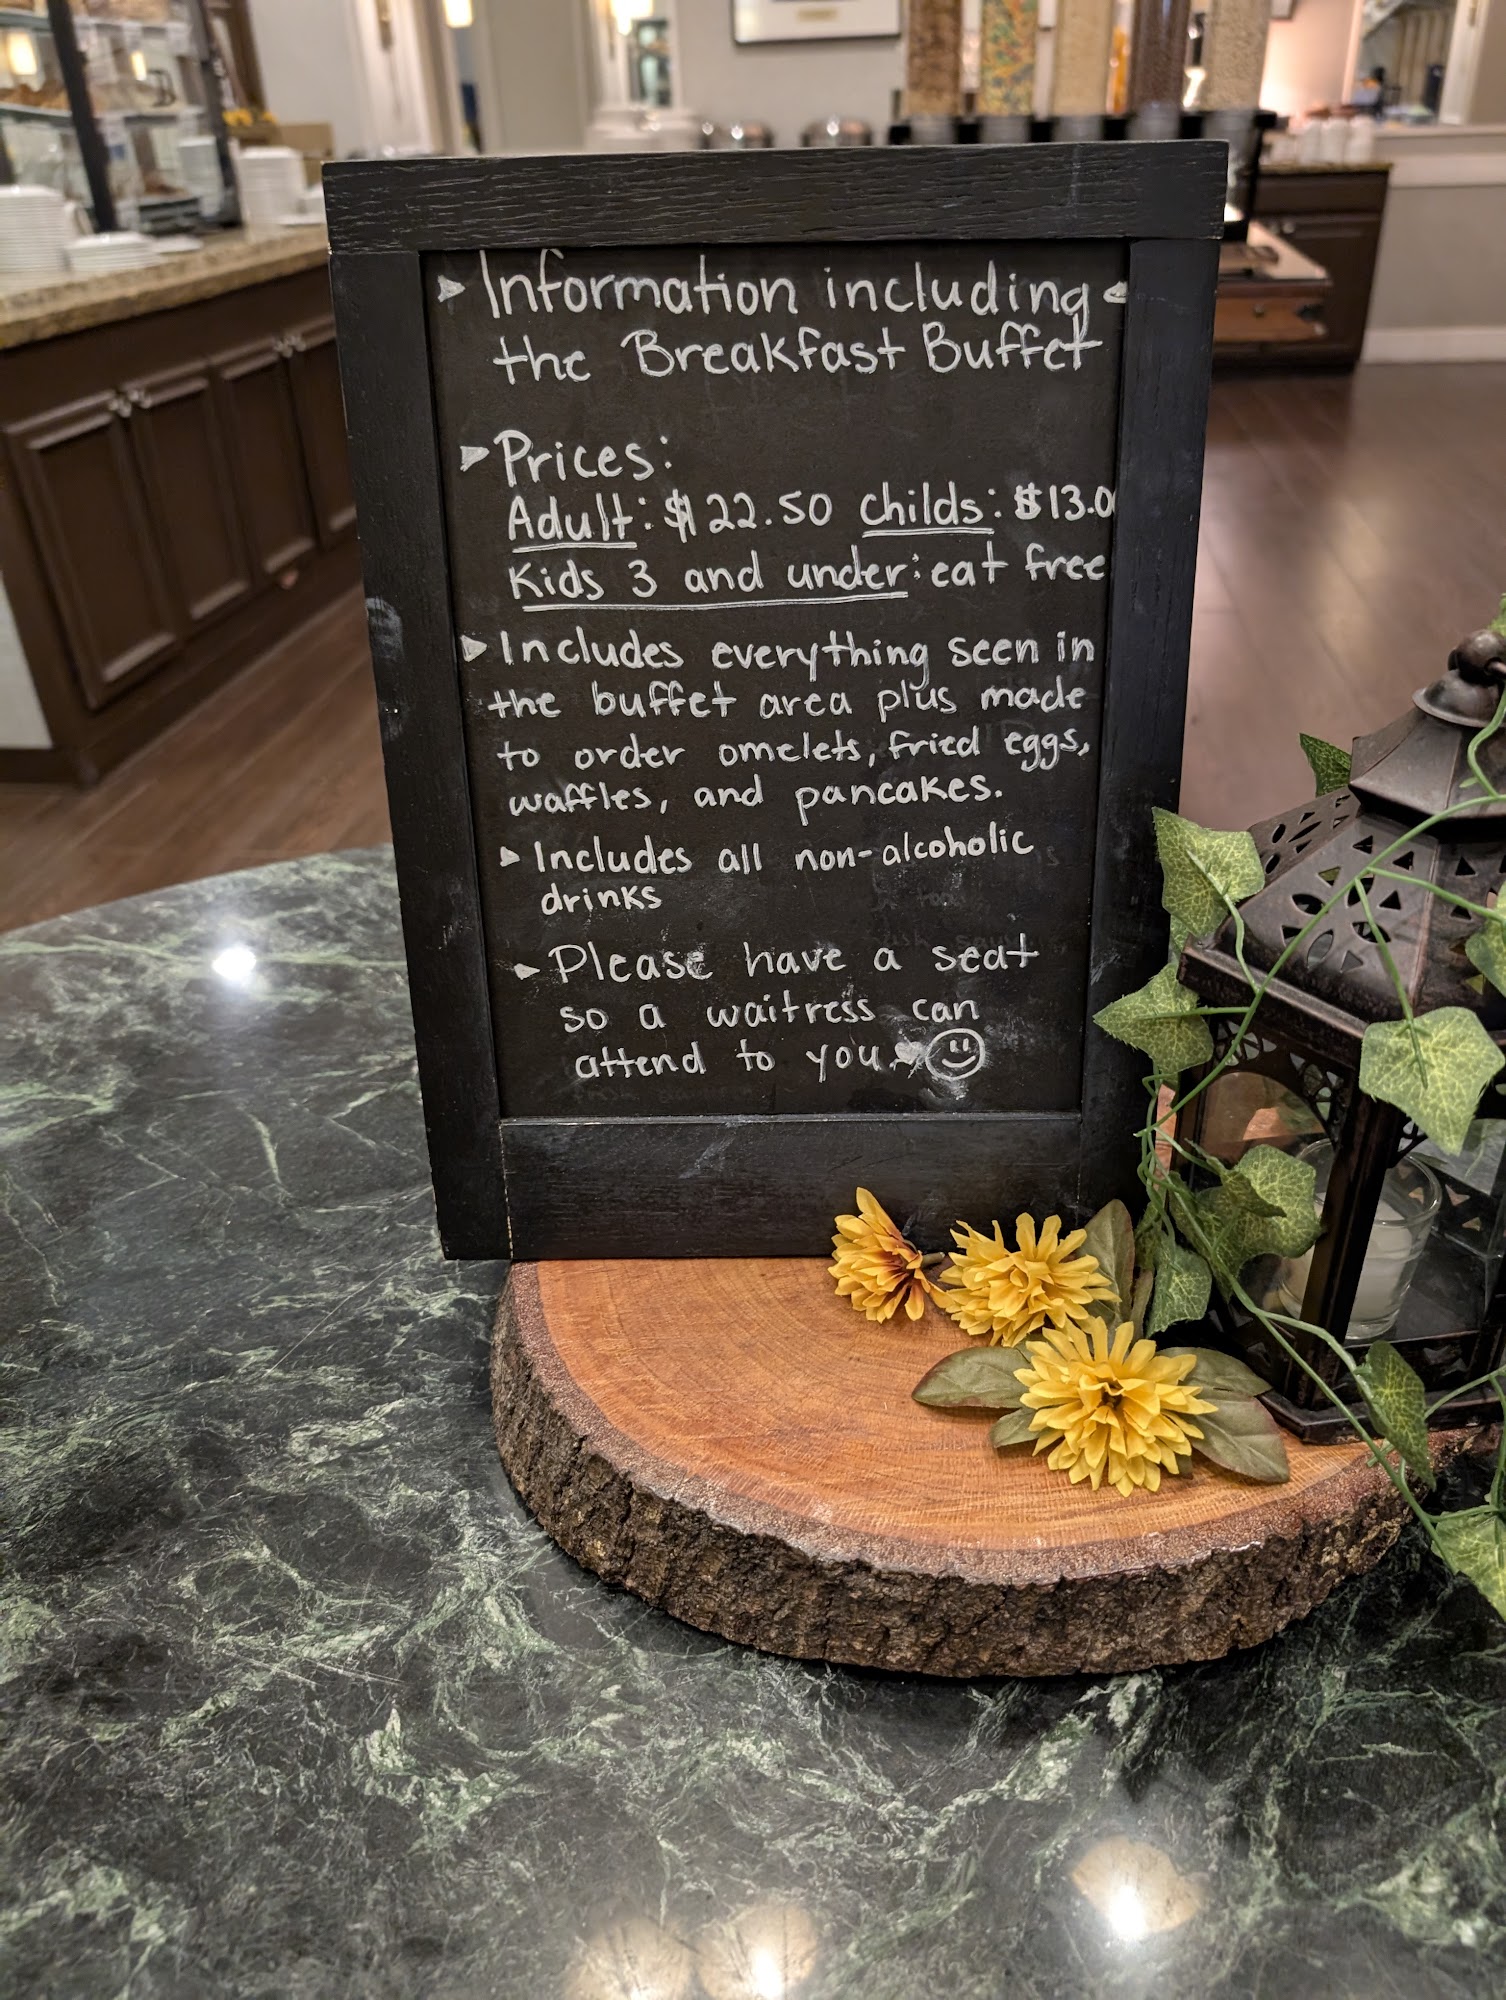 Information including
the Breakfast Buffet
Prices:
Adult: $22.50 Childs: $13.00
Kids 3 and under: eat free
Includes everything seen in
the buffet area plus made
to order omelets, fried eggs,
waffles, and pancakes.
Includes all non-alcoholic
drinks
Please have a seat
so a waitress can
attend to you